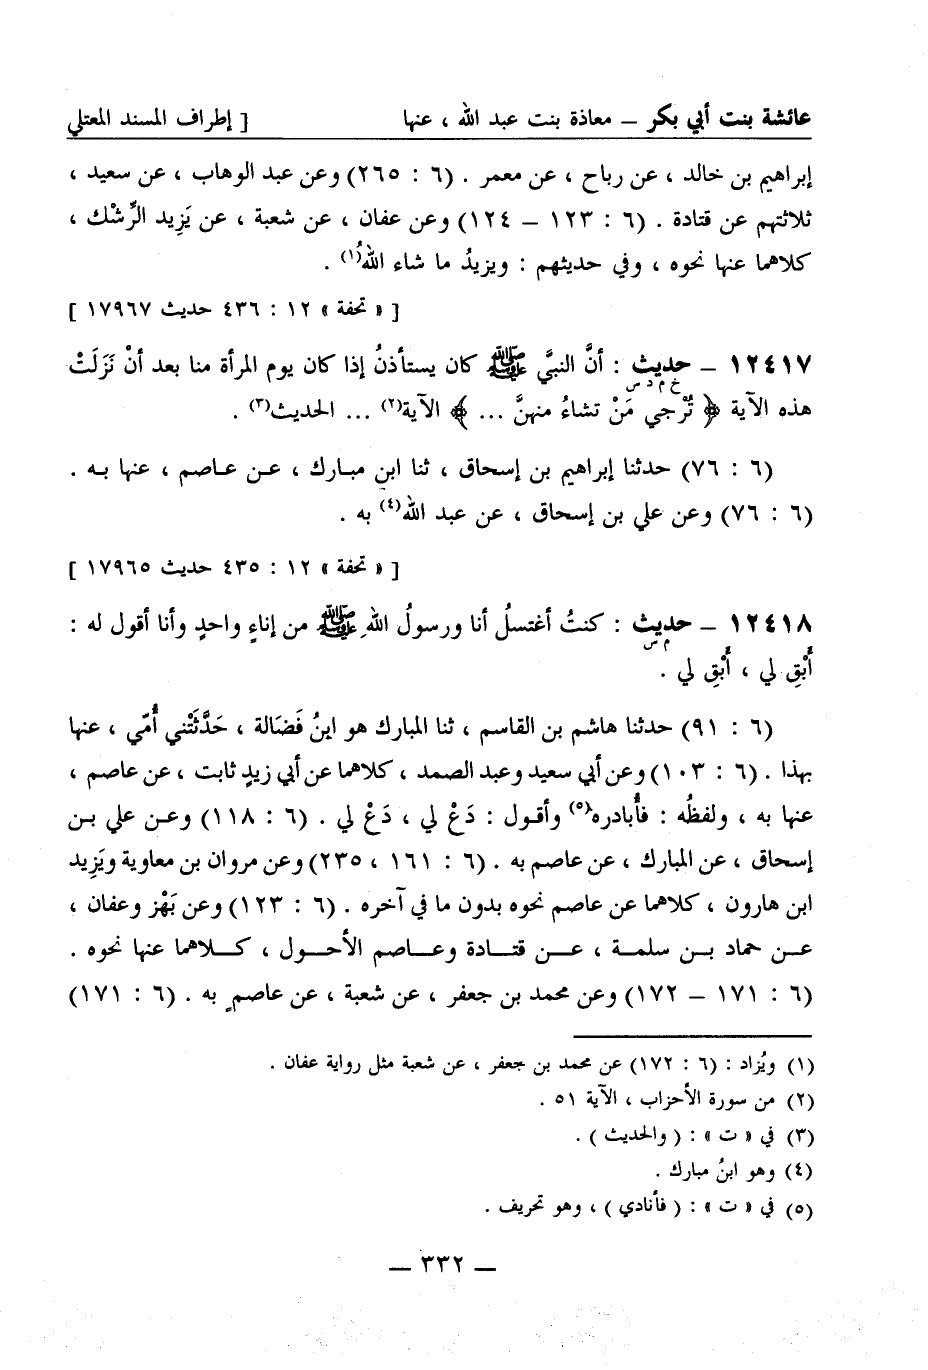 عائشة بنت أبي بكر – معاذة بنت عبد الله ، عنها [ إطراف المسند المعتلي
إبراهيم بن خالد ، عن رباح ، عن معمر . (٦ : ٢٦٥) وعن عبد الوهاب ، عن سعيد ،
ثلاثتهم عن قتادة . (٦ : ١٢٣ – ١٢٤) وعن عفان ، عن شعبة ، عن يَزِيد الرِّشْك ،
كلاهما عنها نحوه ، وفي حديثهم : ويزيدُ ما شاء اللهُ(١) .
[ « تحفة » ١٢ : ٤٣٦ حديث ١٧٩٦٧ ]
١٢٤١٧ – حديث : أنَّ النبيَّ ﷺ كان يستأذنُ إذا كان يوم المرأة منا بعد أنْ نَزَلَتْ
خ م د س
هذه الآية ﴿ تُرْجي مَنْ تشاءُ منهنَّ ... ﴾ الآية(٢) ... الحديث(٣) .
(٦ : ٧٦) حدثنا إبراهيم بن إسحاق ، ثنا ابن مبارك ، عن عاصم ، عنها به .
(٦ : ٧٦) وعن علي بن إسحاق ، عن عبد الله(٤) به .
[ « تحفة » ١٢ : ٤٣٥ حديث ١٧٩٦٥ ]
١٢٤١٨ – حديث : كنتُ أغتسلُ أنا ورسولُ اللهِ ﷺ من إناءٍ واحدٍ وأنا أقول له :
م س
أَبْقِ لي ، أَبْقِ لي .
(٦ : ٩١) حدثنا هاشم بن القاسم ، ثنا المبارك هو ابنُ فَضَالة ، حَدَّثَتْني أُمّي ، عنها
بهذا . (٦ : ١٠٣) وعن أبي سعيد وعبد الصمد ، كلاهما عن أبي زيدٍ ثابت ، عن عاصم ،
عنها به ، ولفظُه : فأُبادره(٥) وأقول : دَعْ لي ، دَعْ لي . (٦ : ١١٨) وعن علي بن
إسحاق ، عن المبارك ، عن عاصم به . (٦ : ١٦١ ، ٢٣٥) وعن مروان بن معاوية ويَزِيد
ابن هارون ، كلاهما عن عاصم نحوه بدون ما في آخره . (٦ : ١٢٣) وعن بَهْز وعفان ،
عن حماد بن سلمة ، عن قتادة وعاصم الأحول ، كلاهما عنها نحوه .
(٦ : ١٧١ – ١٧٢) وعن محمد بن جعفر ، عن شعبة ، عن عاصمٍ به . (٦ : ١٧١)
(١) ويُزاد : (٦ : ١٧٢) عن محمد بن جعفر ، عن شعبة مثل رواية عفان .
(٢) من سورة الأحزاب ، الآية ٥١ .
(٣) في « ت » : ( والحديث ) .
(٤) وهو ابنُ مبارك .
(٥) في « ت » : ( فأنادي ) ، وهو تحريف .
– ٣٣٢ –